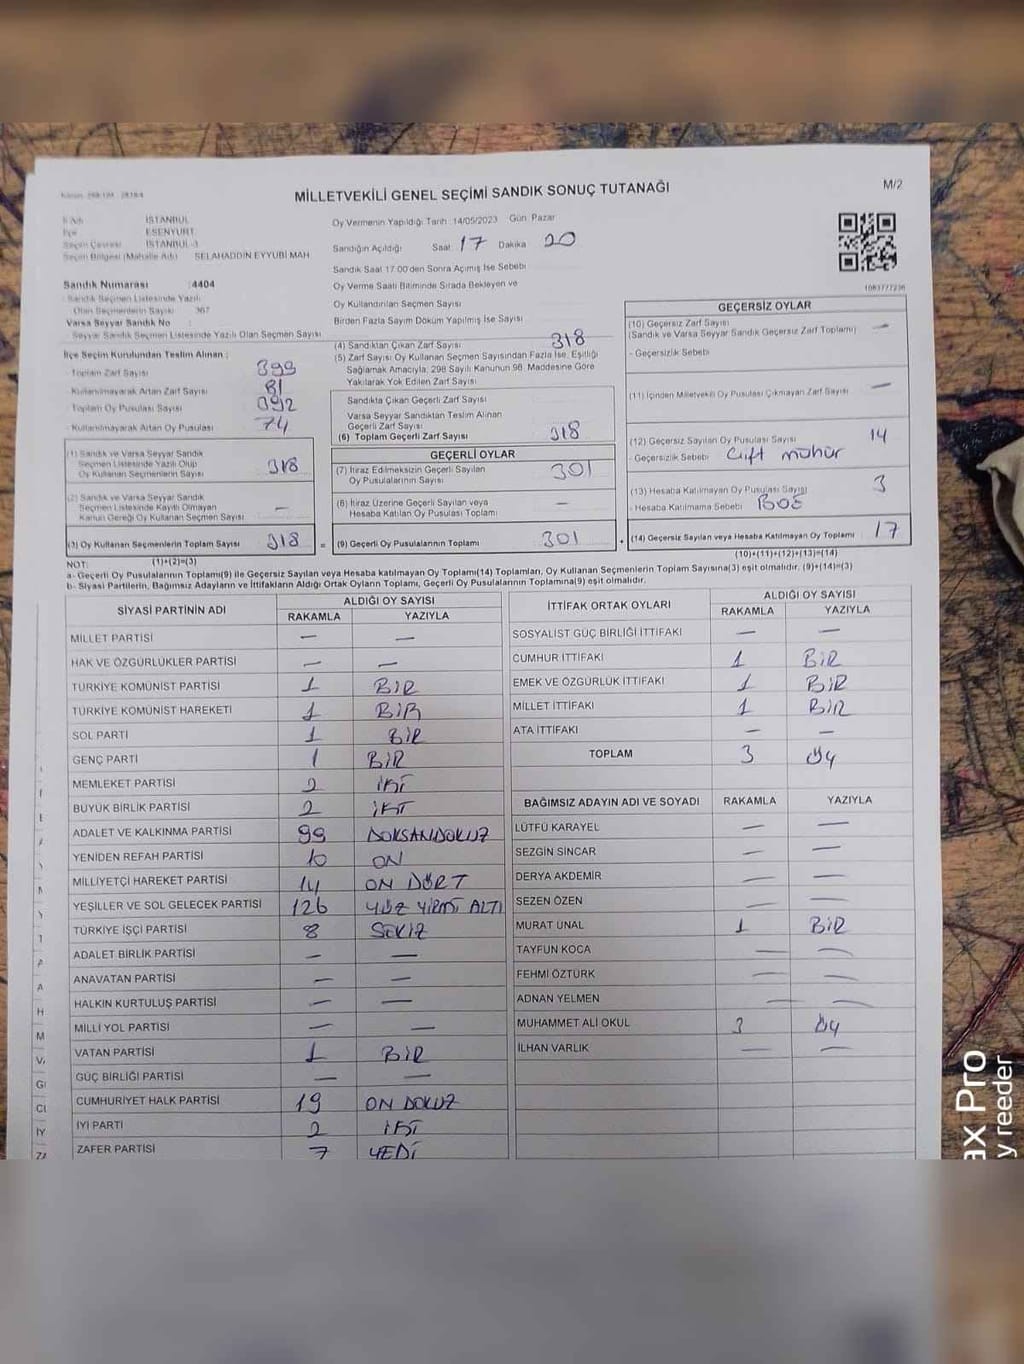 MİLLETVEKİLİ GENEL SEÇİMİ SANDIK SONUÇ TUTANAĞI
M/2
İl Adı İSTANBUL
İlçe ESENYURT
Seçim Çevresi İSTANBUL-3
Seçim Bölgesi (Mahalle Adı) SELAHADDİN EYYUBİ MAH
Oy Vermenin Yapıldığı Tarih 14/05/2023 Gün Pazar
Sandığın Açıldığı Saat 17 Dakika 20
Sandık Saat 17.00'den Sonra Açılmış İse Sebebi
Oy Verme Saati Bitiminde Sırada Bekleyen ve
Oy Kullandırılan Seçmen Sayısı
Birden Fazla Sayım Döküm Yapılmış İse Sayısı
Sandık Numarası : 4404
Sandık Seçmen Listesinde Yazılı
Olan Seçmenlerin Sayısı 367
Varsa Seyyar Sandık No :
Seyyar Sandık Seçmen Listesinde Yazılı Olan Seçmen Sayısı
İlçe Seçim Kurulundan Teslim Alınan :
- Toplam Zarf Sayısı 399
- Kullanılmayarak Artan Zarf Sayısı 81
- Toplam Oy Pusulası Sayısı 392
- Kullanılmayarak Artan Oy Pusulası 74
(1) Sandık ve Varsa Seyyar Sandık
Seçmen Listesinde Yazılı Olup
Oy Kullanan Seçmenlerin Sayısı 318
(2) Sandık ve Varsa Seyyar Sandık
Seçmen Listesinde Kayıtlı Olmayan
Kanun Gereği Oy Kullanan Seçmen Sayısı —
(3) Oy Kullanan Seçmenlerin Toplam Sayısı 318 =
(1)+(2)=(3)
(4) Sandıktan Çıkan Zarf Sayısı 318
(5) Zarf Sayısı Oy Kullanan Seçmen Sayısından Fazla İse, Eşitliği
Sağlamak Amacıyla, 298 Sayılı Kanunun 98. Maddesine Göre
Yakılarak Yok Edilen Zarf Sayısı
Sandıkta Çıkan Geçerli Zarf Sayısı
Varsa Seyyar Sandıktan Teslim Alınan
Geçerli Zarf Sayısı
(6) Toplam Geçerli Zarf Sayısı 318
GEÇERLİ OYLAR
(7) İtiraz Edilmeksizin Geçerli Sayılan
Oy Pusulalarının Sayısı 301
(8) İtiraz Üzerine Geçerli Sayılan veya
Hesaba Katılan Oy Pusulası Toplamı —
(9) Geçerli Oy Pusulalarının Toplamı 301 +
GEÇERSİZ OYLAR
(10) Geçersiz Zarf Sayısı
(Sandık ve Varsa Seyyar Sandık Geçersiz Zarf Toplamı) —
- Geçersizlik Sebebi
(11) İçinden Milletvekili Oy Pusulası Çıkmayan Zarf Sayısı —
(12) Geçersiz Sayılan Oy Pusulası Sayısı 14
- Geçersizlik Sebebi Çift mühür
(13) Hesaba Katılmayan Oy Pusulası Sayısı 3
- Hesaba Katılmama Sebebi BOŞ
(14) Geçersiz Sayılan veya Hesaba Katılmayan Oy Toplamı 17
(10)+(11)+(12)+(13)=(14)
NOT:
a- Geçerli Oy Pusulalarının Toplamı(9) ile Geçersiz Sayılan veya Hesaba katılmayan Oy Toplamı(14) Toplamları, Oy Kullanan Seçmenlerin Toplam Sayısına(3) eşit olmalıdır. (9)+(14)=(3)
b- Siyasi Partilerin, Bağımsız Adayların ve İttifakların Aldığı Ortak Oyların Toplamı, Geçerli Oy Pusulalarının Toplamına(9) eşit olmalıdır.
SİYASİ PARTİNİN ADI ALDIĞI OY SAYISI
RAKAMLA YAZIYLA
MİLLET PARTİSİ — —
HAK VE ÖZGÜRLÜKLER PARTİSİ — —
TÜRKİYE KOMÜNİST PARTİSİ 1 BİR
TÜRKİYE KOMÜNİST HAREKETİ 1 BİR
SOL PARTİ 1 BİR
GENÇ PARTİ 1 BİR
MEMLEKET PARTİSİ 2 İKİ
BÜYÜK BİRLİK PARTİSİ 2 İKİ
ADALET VE KALKINMA PARTİSİ 99 DOKSANDOKUZ
YENİDEN REFAH PARTİSİ 10 ON
MİLLİYETÇİ HAREKET PARTİSİ 14 ON DÖRT
YEŞİLLER VE SOL GELECEK PARTİSİ 126 YÜZ YİRMİ ALTI
TÜRKİYE İŞÇİ PARTİSİ 8 SEKİZ
ADALET BİRLİK PARTİSİ — —
ANAVATAN PARTİSİ — —
HALKIN KURTULUŞ PARTİSİ — —
MİLLİ YOL PARTİSİ — —
VATAN PARTİSİ 1 BİR
GÜÇ BİRLİĞİ PARTİSİ — —
CUMHURİYET HALK PARTİSİ 19 ON DOKUZ
İYİ PARTİ 2 İKİ
ZAFER PARTİSİ 7 YEDİ
İTTİFAK ORTAK OYLARI ALDIĞI OY SAYISI
RAKAMLA YAZIYLA
SOSYALİST GÜÇ BİRLİĞİ İTTİFAKI — —
CUMHUR İTTİFAKI 1 BİR
EMEK VE ÖZGÜRLÜK İTTİFAKI 1 BİR
MİLLET İTTİFAKI 1 BİR
ATA İTTİFAKI — —
TOPLAM 3 Üç
BAĞIMSIZ ADAYIN ADI VE SOYADI RAKAMLA YAZIYLA
LÜTFÜ KARAYEL — —
SEZGİN SİNCAR — —
DERYA AKDEMİR — —
SEZEN ÖZEN — —
MURAT ÜNAL 1 BİR
TAYFUN KOCA — —
FEHMİ ÖZTÜRK — —
ADNAN YELMEN — —
MUHAMMET ALİ OKUL 3 Üç
İLHAN VARLIK — —
ax Pro
y reeder